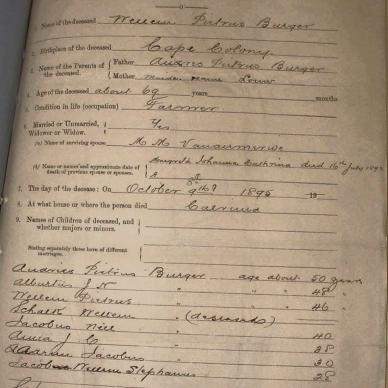 1. Name of the deceased Willem Petrus Burger
2. Birthplace of the deceased Cape Colony
3. Names of the Parents of the deceased. Father Petrus Burger
Mother maiden name Louw
4. Age of the deceased about 69 years months
5. Condition in life (occupation) Farmer
6. Married or Unmarried, Widower or Widow. Yes
(a) Name of surviving spouse
(b) Name or names and approximate date of death of previous spouse or spouses. Johanna died 16th July
7. The day of the decease: On October 9th 1895 19
8. At what house or where the person died
9. Names of Children of deceased, and whether majors or minors.
Stating separately those born of different marriages.
Andries Petrus Burger age about 50 years
Albertus J N " " 48 "
Willem Petrus " " 46 "
Schalk Willem " (deceased)
Jacobus Niel " 40
Anna J C " 38
Jacobus " 30
Jacobus Willem Stephanus 28